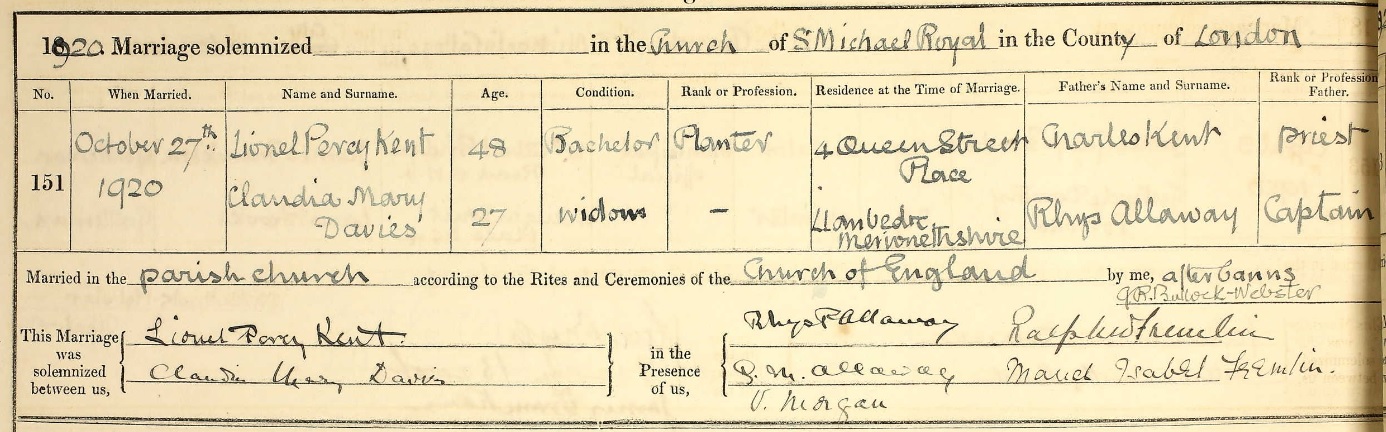 1920. Marriage solemnized in the Church of St Michael Royal in the County of London
No. When Married. Name and Surname. Age. Condition. Rank or Profession. Residence at the Time of Marriage. Father's Name and Surname. Rank or Profession Father.
151 October 27th 1920 Lionel Percy Kent 48 Bachelor Planter 4 Queen Street Place Charles Kent priest
Claudia Mary Davies 27 widow – Llanbedr Merionethshire Rhys Allaway Captain
Married in the parish church according to the Rites and Ceremonies of the Church of England by me, after banns
G.R. Bullock-Webster
This Marriage was solemnized between us, Lionel Percy Kent. in the Presence of us, Rhys P Allaway Ralph W Fremlin
Claudia Mary Davies M. Allaway Maud Isabel Fremlin.
V. Morgan